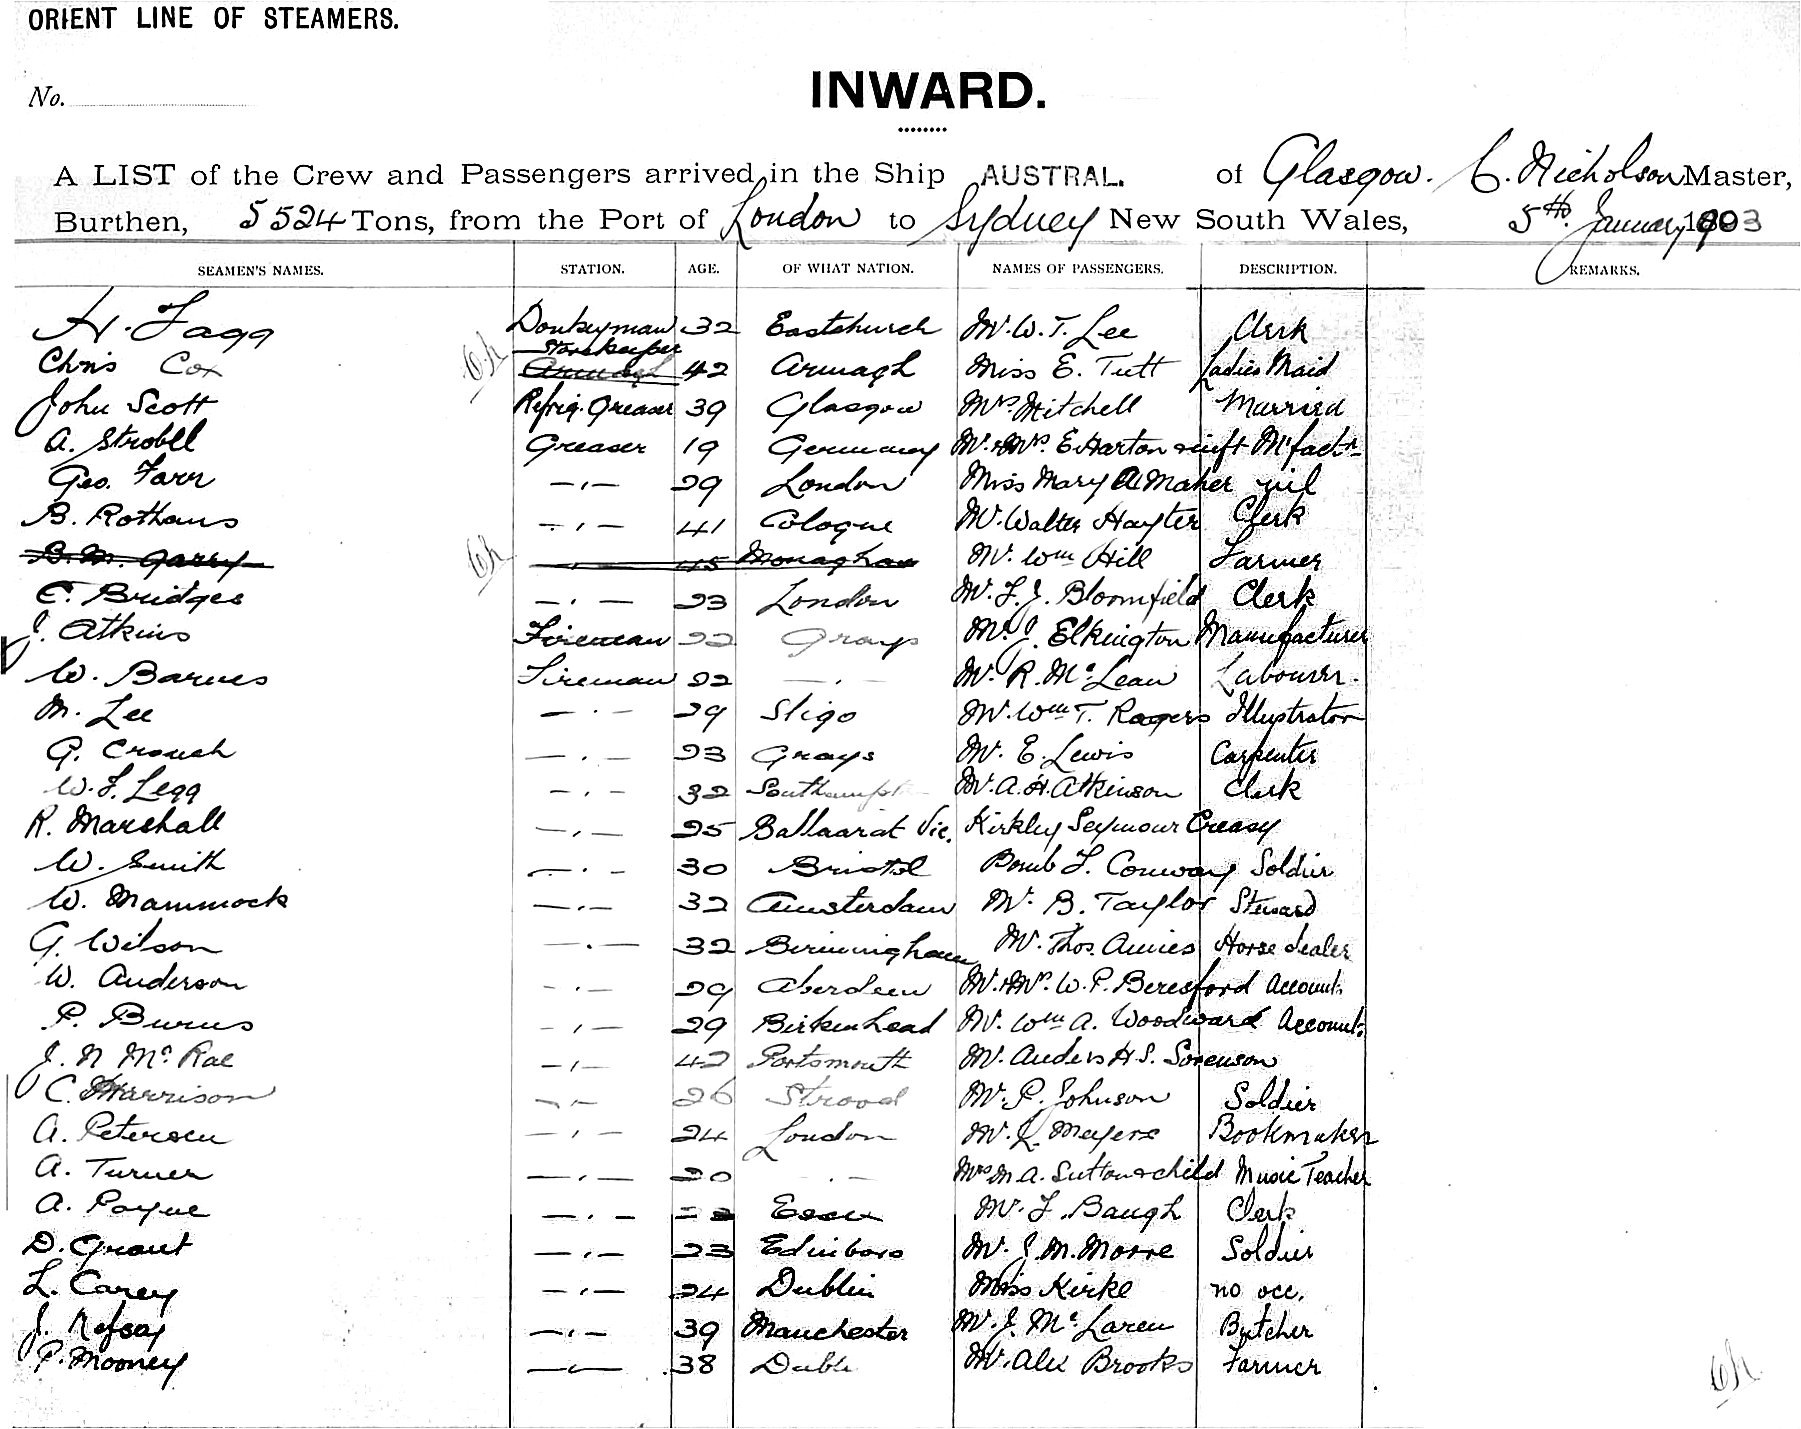 ORIENT LINE OF STEAMERS.
No.
INWARD.
A LIST of the Crew and Passengers arrived in the Ship AUSTRAL. of Glasgow. C. Nicholson Master,
Burthen, 5524 Tons, from the Port of London to Sydney New South Wales, 5th January 1903
SEAMEN'S NAMES. STATION. AGE. OF WHAT NATION. NAMES OF PASSENGERS. DESCRIPTION. REMARKS.
H. Fagg Donkeyman 32 Eastchurch Mr. W. T. Lee Clerk
Storekeeper
Chris Cox Armagh 42 Armagh Miss E. Tutt Ladies Maid
John Scott Refrig. Greaser 39 Glasgow Mrs Mitchell Married
A. Strobll Greaser 19 Germany Mr. & Mrs E. Harton & inft Mfactr
Geo. Farr — " — 29 London Miss Mary A Maher nil
B. Rothaus — " — 41 Cologne Mr. Walter Hayter Clerk
B. M. Garry — " — 45 Monaghan Mr. Wm Hill Farmer
E. Bridges — " — 23 London Mr. F. J. Bloomfield Clerk
J. Atkins Fireman 22 Grays Mr. J. Elkington Manufacturer
W. Barnes Fireman 22 — " — Mr. R. Mc Lean Labourer.
M. Lee — " — 29 Sligo Mr. Wm T. Rogers Illustrator
G. Crouch — " — 23 Grays Mr. E. Lewis Carpenter
W. F. Legg — " — 32 Mr. A. H. Atkinson Clerk
R. Marshall — " — 25 Ballaarat Vic. Kirkley Seymour Creasy
W. Smith — " — 30 Bristol Bomb F. Conway Soldier
W. Mammock — " — 32 Amsterdam Mr. B. Taylor Steward
G. Wilson — " — 32 Birmingham Mr. Thos. Amies Horse dealer
W. Anderson — " — 29 Aberdeen Mr. & Mrs. W. P. Beresford Account.
P. Burns — " — 29 Birkenhead Mr. Wm A. Woodward Account.
J. N Mc Rae — " — 42 Portsmouth Mr. Anders H. S. Sorenson
C. Harrison — " — 26 Strood Mr. P. Johnson Soldier
A. Petersen — " — 24 London Mr. J. Meyers Bookmaker
A. Turner — " — 20 — " — Mrs M A. Sutton & child Music Teacher
A. Payne — " — Mr. F. Baugh Clerk
D. Grant — " — 23 Edinboro Mr. J. M. Morre Soldier
L. Carey — " — 24 Dublin Miss Kirke no occ.
J. — " — 39 Manchester Mr. J. Mc Laren Butcher
P. Mooney — " — 38 Mr. Alex Brooks Farmer